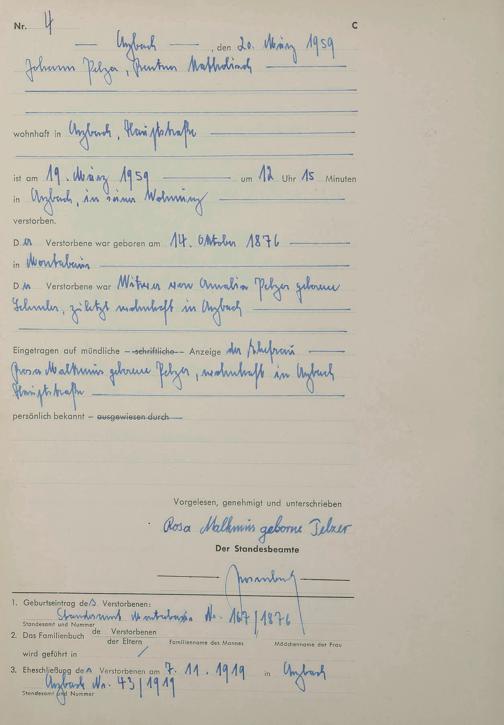 Nr. 4 C
Asbach, den 20. März 1959
Johann Pelzer, Rentner Katholisch
wohnhaft in Asbach, Hauptstraße
ist am 19. März 1959 um 12 Uhr 15 Minuten
in Asbach, in seiner Wohnung
verstorben.
Der Verstorbene war geboren am 14. Oktober 1876
in Montabaur
Der Verstorbene war Witwer von Amalia Pelzer geborene
zuletzt wohnhaft in Asbach
Eingetragen auf mündliche – schriftliche – Anzeige der Ehefrau
Rosa geborene Pelzer, wohnhaft in Asbach
Hauptstraße
persönlich bekannt – ausgewiesen durch
Vorgelesen, genehmigt und unterschrieben
Rosa geborne Pelzer
Der Standesbeamte
1. Geburtseintrag des Verstorbenen:
Standesamt Montabaur Nr. 167/1876
Standesamt und Nummer
2. Das Familienbuch de Verstorbenen
der Eltern Familienname des Mannes Mädchenname der Frau
wird geführt in /
3. Eheschließung des Verstorbenen am 7. 11. 1919 in Asbach
Asbach Nr. 43/1919
Standesamt und Nummer